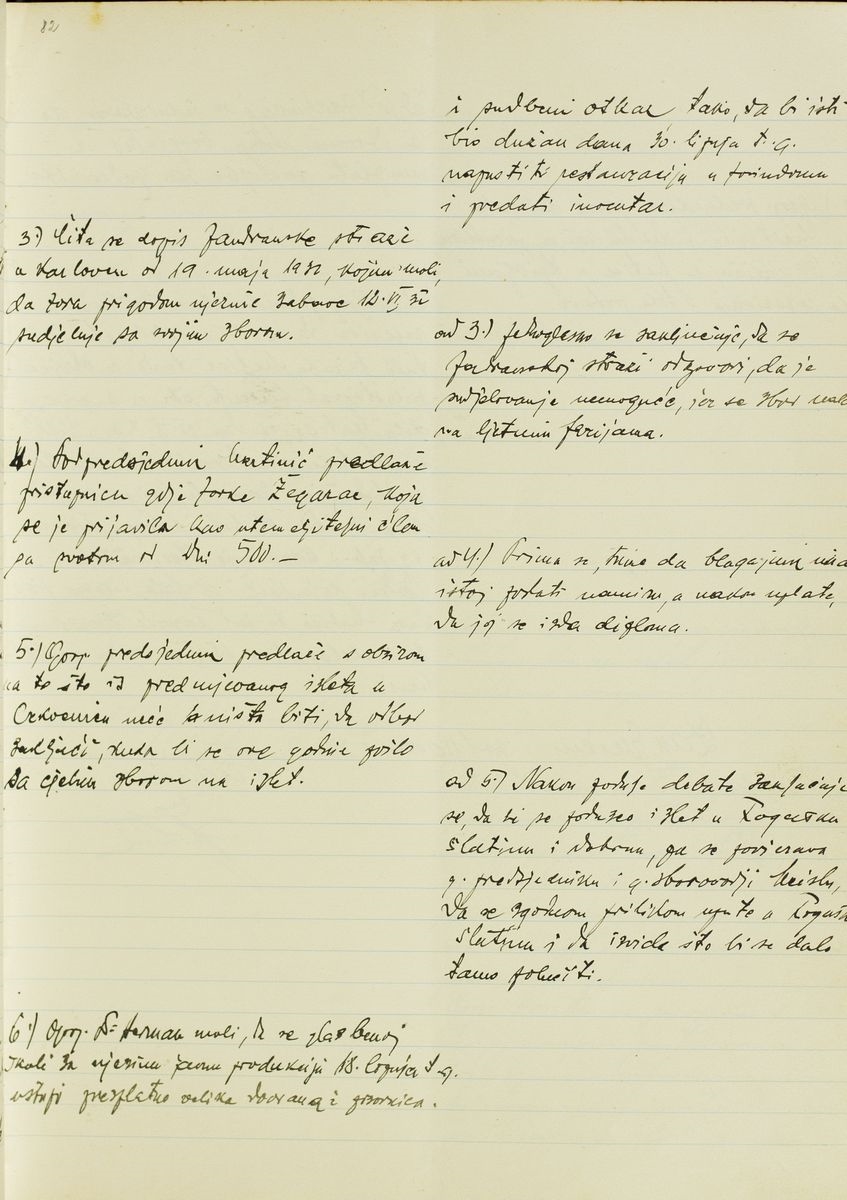 82
i sudbeni otkaz, tako, da bi isti
bio dužan dana 30. lipnja t. g.
napustiti restauraciju u
i predati inventar.
3.) Čita se dopis Jadranske straže
u Karlovcu od 19. maja 1932, kojim moli,
da Zora prigodom njezine zabave 12. VI 32
sudjeluje sa svojim zborom.
ad 3.) Jednoglasno se zaključuje, da se
Jadranskoj straži odgovori, da je
sudjelovanje nemoguće, jer se zbor nalazi
na ljetnim ferijama.
4.) Podpredsjednik Martinić predlaže
pristupnicu gdje Zorke Žegarac, koja
se je prijavila kao utemeljiteljni član
sa svotom od Din 500.—
ad 4.) Prima se, time da blagajnik ima
istoj poslati namiru, a nakon uplate,
da joj se izda diploma.
5.) Gosp. predsjednik predlaže s obzirom
na to što iz predmjevanog izleta u
Crkvenicu neće ništa biti, da odbor
zaključi, kuda bi se ove godine pošlo
sa cijelim zborom na izlet.
ad 5.) Nakon podulje debate zaključuje
se, da bi se poduzeo izlet u Rogašku
Slatinu i Dobrnu, pa se povjerava
g. predsjedniku i g. zborovodji
da se zgodnom prilikom upute u Rogašku
Slatinu i da izvide što bi se dalo
tamo polučiti.
6.) Gosp. Dr Herman moli, da se glazbenoj
školi za njezinu javnu produkciju 18. lipnja t. g.
ustupi besplatno velika dvorana i